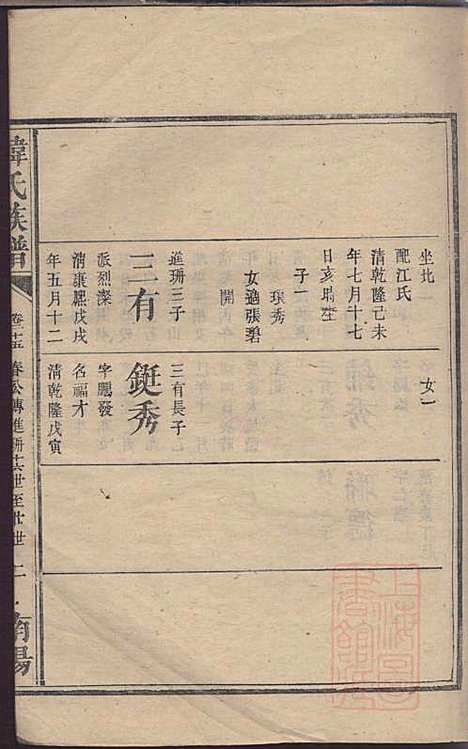 坐北
配江氏
清乾隆己未
年七月十七
日亥時生
子一
琅秀
女適張碧
開
進珊三子
三有
派烈澯
清康熙戊戌
年五月十二
女一
三有長子
鋌秀
字鵬發
名福才
清乾隆戊寅
韓氏族譜
春公傳進珊
世至廿世
二
南陽
上海圖書館藏